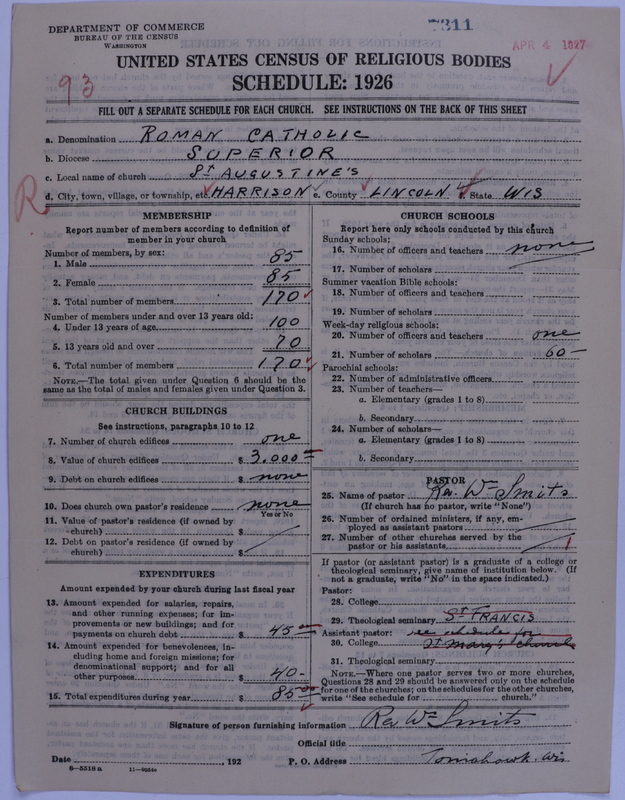 DEPARTMENT OF COMMERCE
BUREAU OF THE CENSUS
WASHINGTON
7311
APR 4 1927
93
UNITED STATES CENSUS OF RELIGIOUS BODIES
SCHEDULE: 1926
FILL OUT A SEPARATE SCHEDULE FOR EACH CHURCH. SEE INSTRUCTIONS ON THE BACK OF THIS SHEET
a. Denomination ROMAN CATHOLIC
b. Diocese SUPERIOR
c. Local name of church ST AUGUSTINE'S
R
d. City, town, village, or township, etc. HARRISON e. County LINCOLN f. State WIS
MEMBERSHIP
Report number of members according to definition of
member in your church
Number of members, by sex:
1. Male 85
2. Female 85
3. Total number of members 170
Number of members under and over 13 years old:
4. Under 13 years of age 100
5. 13 years old and over 70
6. Total number of members 170
NOTE.—The total given under Question 6 should be the
same as the total of males and females given under Question 3.
CHURCH BUILDINGS
See instructions, paragraphs 10 to 12
7. Number of church edifices one
8. Value of church edifices $ 3,000
9. Debt on church edifices $ none
10. Does church own pastor's residence none
Yes or No
11. Value of pastor's residence (if owned by
church) $
12. Debt on pastor's residence (if owned by
church) $
EXPENDITURES
Amount expended by your church during last fiscal year
13. Amount expended for salaries, repairs,
and other running expenses; for im-
provements or new buildings; and for
payments on church debt $ 45
14. Amount expended for benevolences, in-
cluding home and foreign missions; for
denominational support; and for all
other purposes $ 40-
15. Total expenditures during year $ 85 00
CHURCH SCHOOLS
Report here only schools conducted by this church
Sunday schools:
16. Number of officers and teachers none
17. Number of scholars
Summer vacation Bible schools:
18. Number of officers and teachers
19. Number of scholars
Week-day religious schools:
20. Number of officers and teachers one
21. Number of scholars 60-
Parochial schools:
22. Number of administrative officers
23. Number of teachers—
a. Elementary (grades 1 to 8)
b. Secondary
24. Number of scholars—
a. Elementary (grades 1 to 8)
b. Secondary
PASTOR
25. Name of pastor Rev. Wm Smits
(If church has no pastor, write "None")
26. Number of ordained ministers, if any, em-
ployed as assistant pastors
27. Number of other churches served by the
pastor or his assistants 1
If pastor (or assistant pastor) is a graduate of a college or
theological seminary, give name of institution below. (If
not a graduate, write "No" in the space indicated.)
Pastor:
28. College
29. Theological seminary ST FRANCIS
Assistant pastor: see schedule for
30. College St Mary's church
31. Theological seminary
NOTE.—Where one pastor serves two or more churches,
Questions 28 and 29 should be answered only on the schedule
for one of the churches; on the schedules for the other churches,
write "See schedule for church."
Signature of person furnishing information Rev Wm Smits
Official title
Date , 192 P. O. Address Tomahawk. Wis
8—5518 a 11—9064a